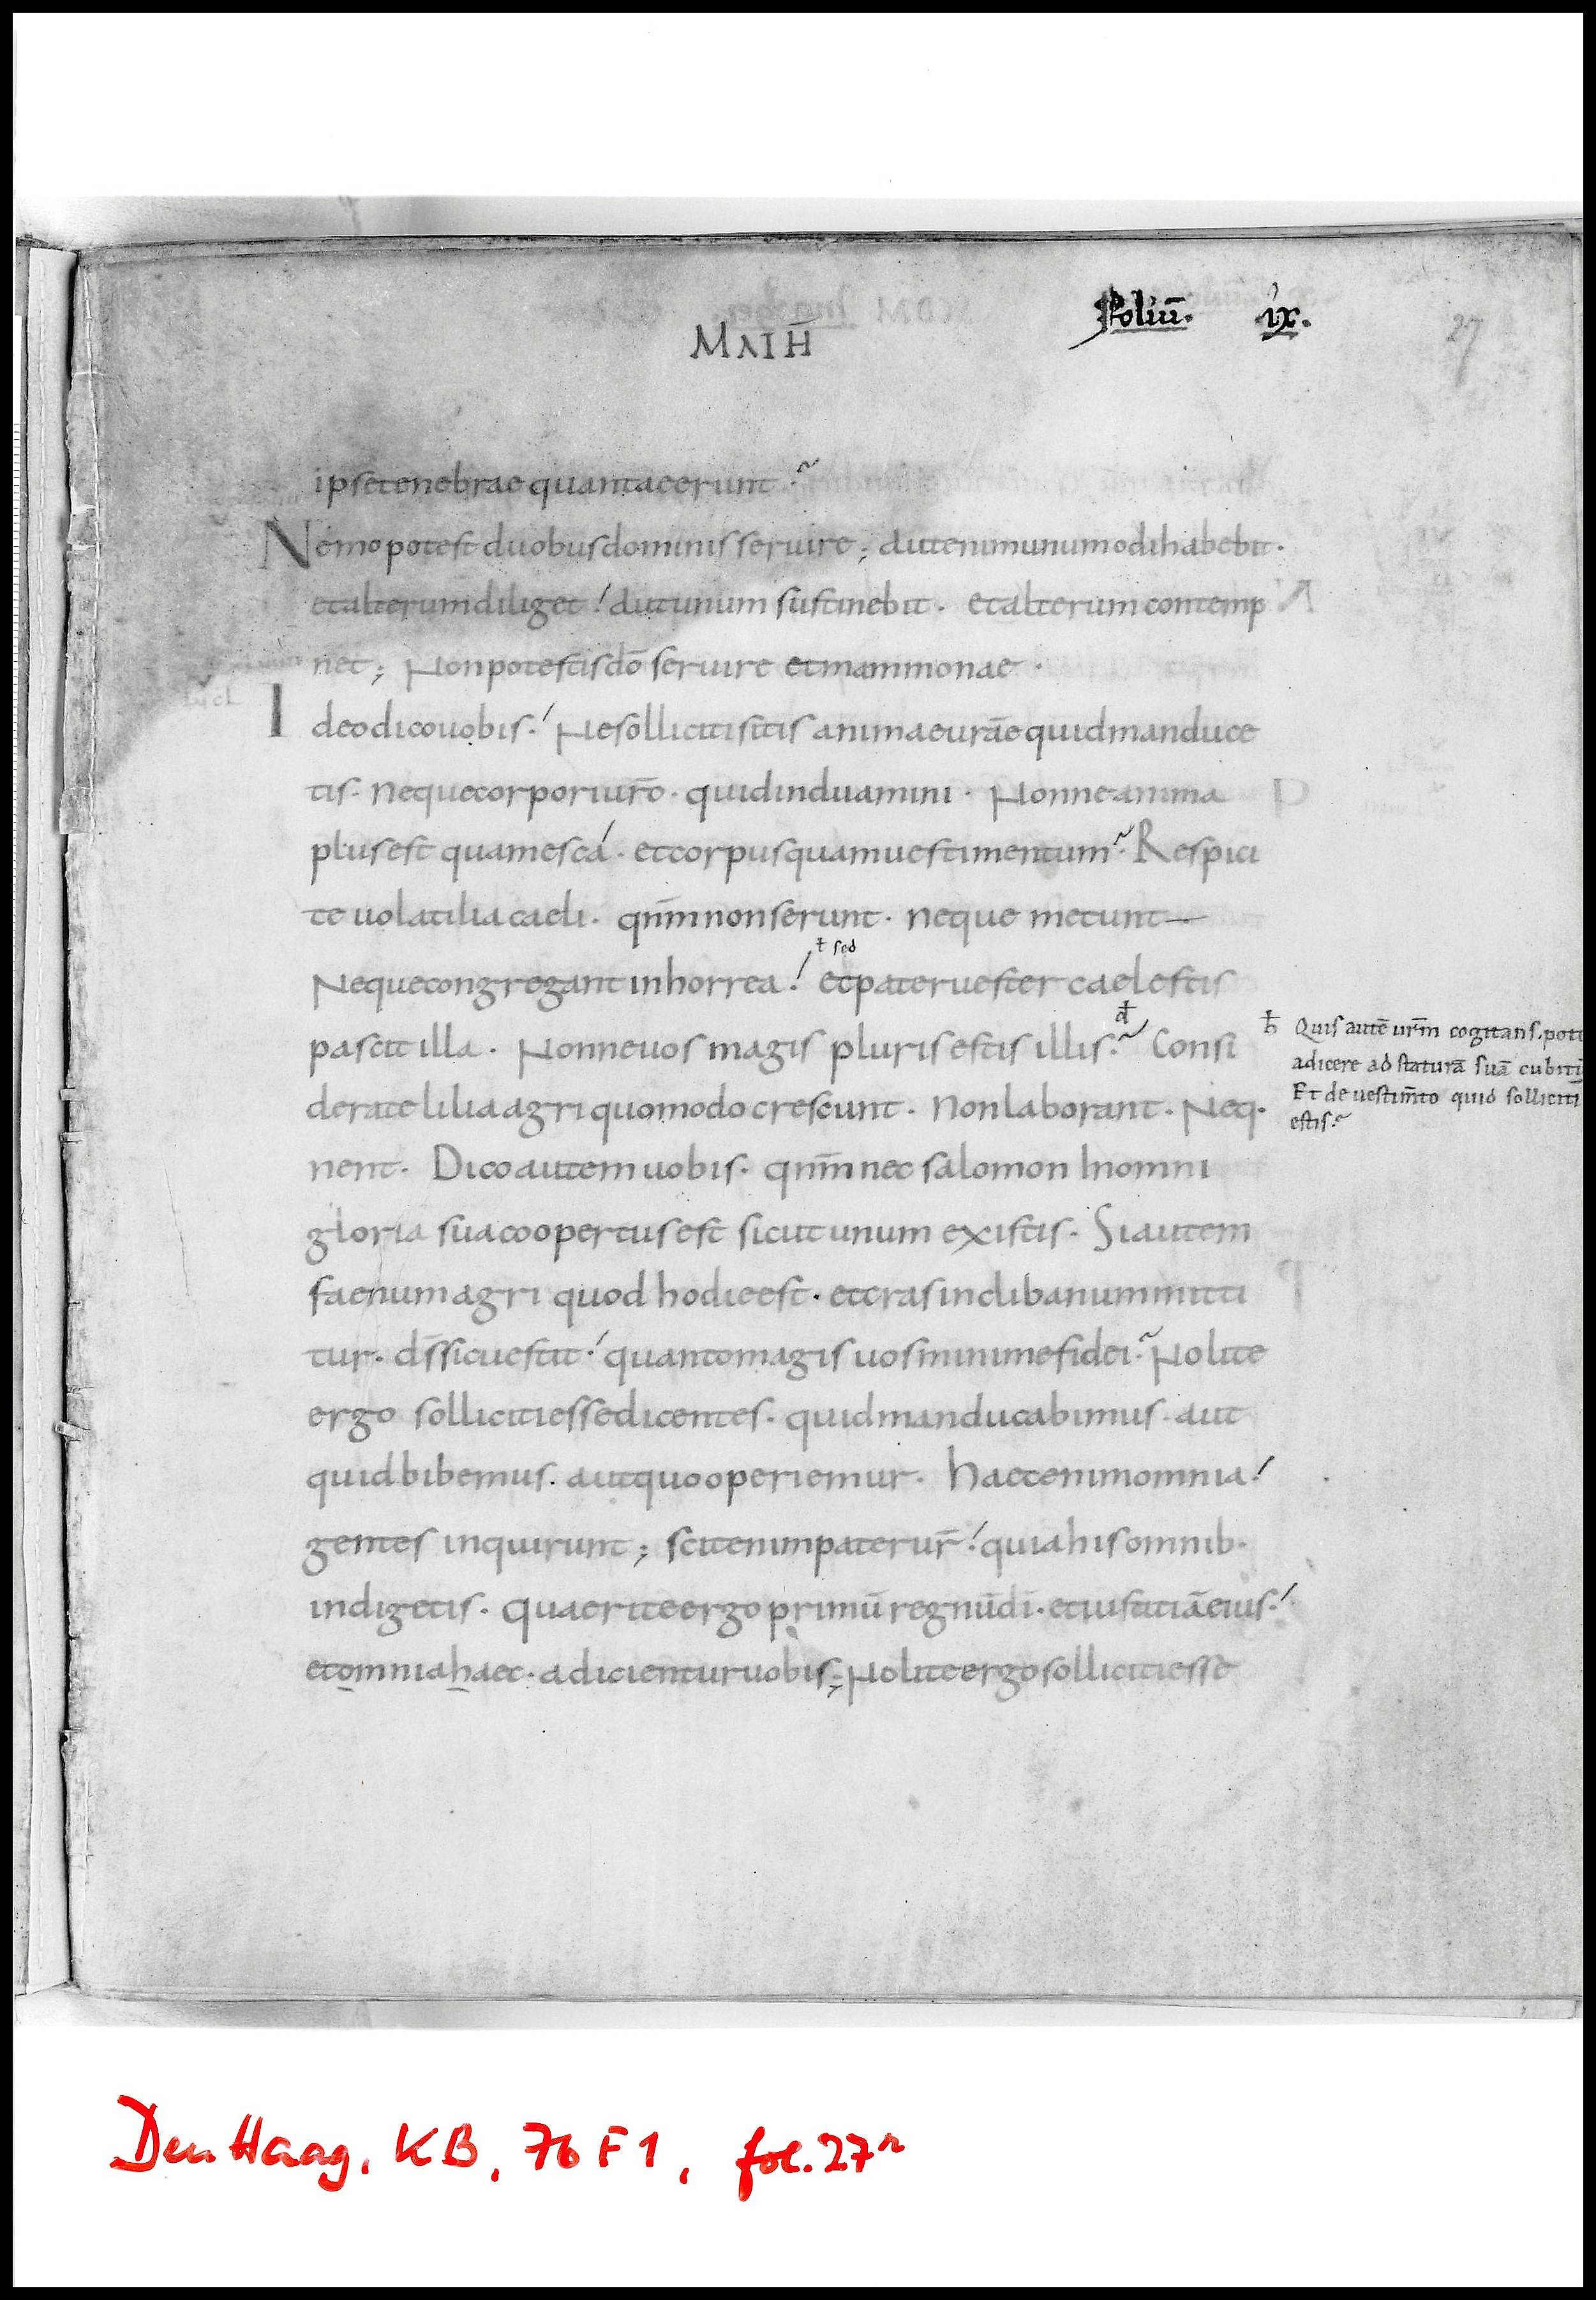 MATH̄
Foliū. ix.
27
ipse tenebrae quantae erunt?
Nemo potest duobus dominis seruire; aut enim unum odi habebit.
et alterum diliget! aut unum sustinebit. et alterum contemp
net; Non potestis dō seruire et mammonae.
Ideo dico uobis! Ne solliciti sitis animae urāe quid manduce
tis. neque corpori ur̄o. quid induamini. Nonne anima
plus est quam esca. et corpus quam uestimentum? Respici
te uolatilia caeli. qn̄m non serunt. neque metunt
ɫ sed
Neque congregant in horrea! et pater uester caelestis
pascit illa. Nonne uos magis pluris estis illis? Consi
đ
ħ Quis autē urm̄ cogitans. pote
adicere ad staturā suā cubitū
Et de uestim̄to quid solliciti
estis?
derate lilia agri quomodo crescunt. Non laborant. Neq.
nent. Dico autem uobis. qn̄m nec salomon In omni
gloria sua coopertus est sicut unum ex istis. Si autem
faenum agri quod hodie est. et cras in clibanum mitti
tur. d̄s sic uestit! quanto magis uos minime fidei? Nolite
ergo solliciti esse dicentes. quid manducabimus. aut
quid bibemus. aut quo operiemur. haec enim omnia!
gentes inquirunt; scit enim pater ur̄! quia his omnib.
indigetis. Quaerite ergo primū regnū dī. et iustitiā eius!
et omnia haec. adicientur uobis; Nolite ergo solliciti esse
Den Haag, KB, 76 F 1, fol. 27r